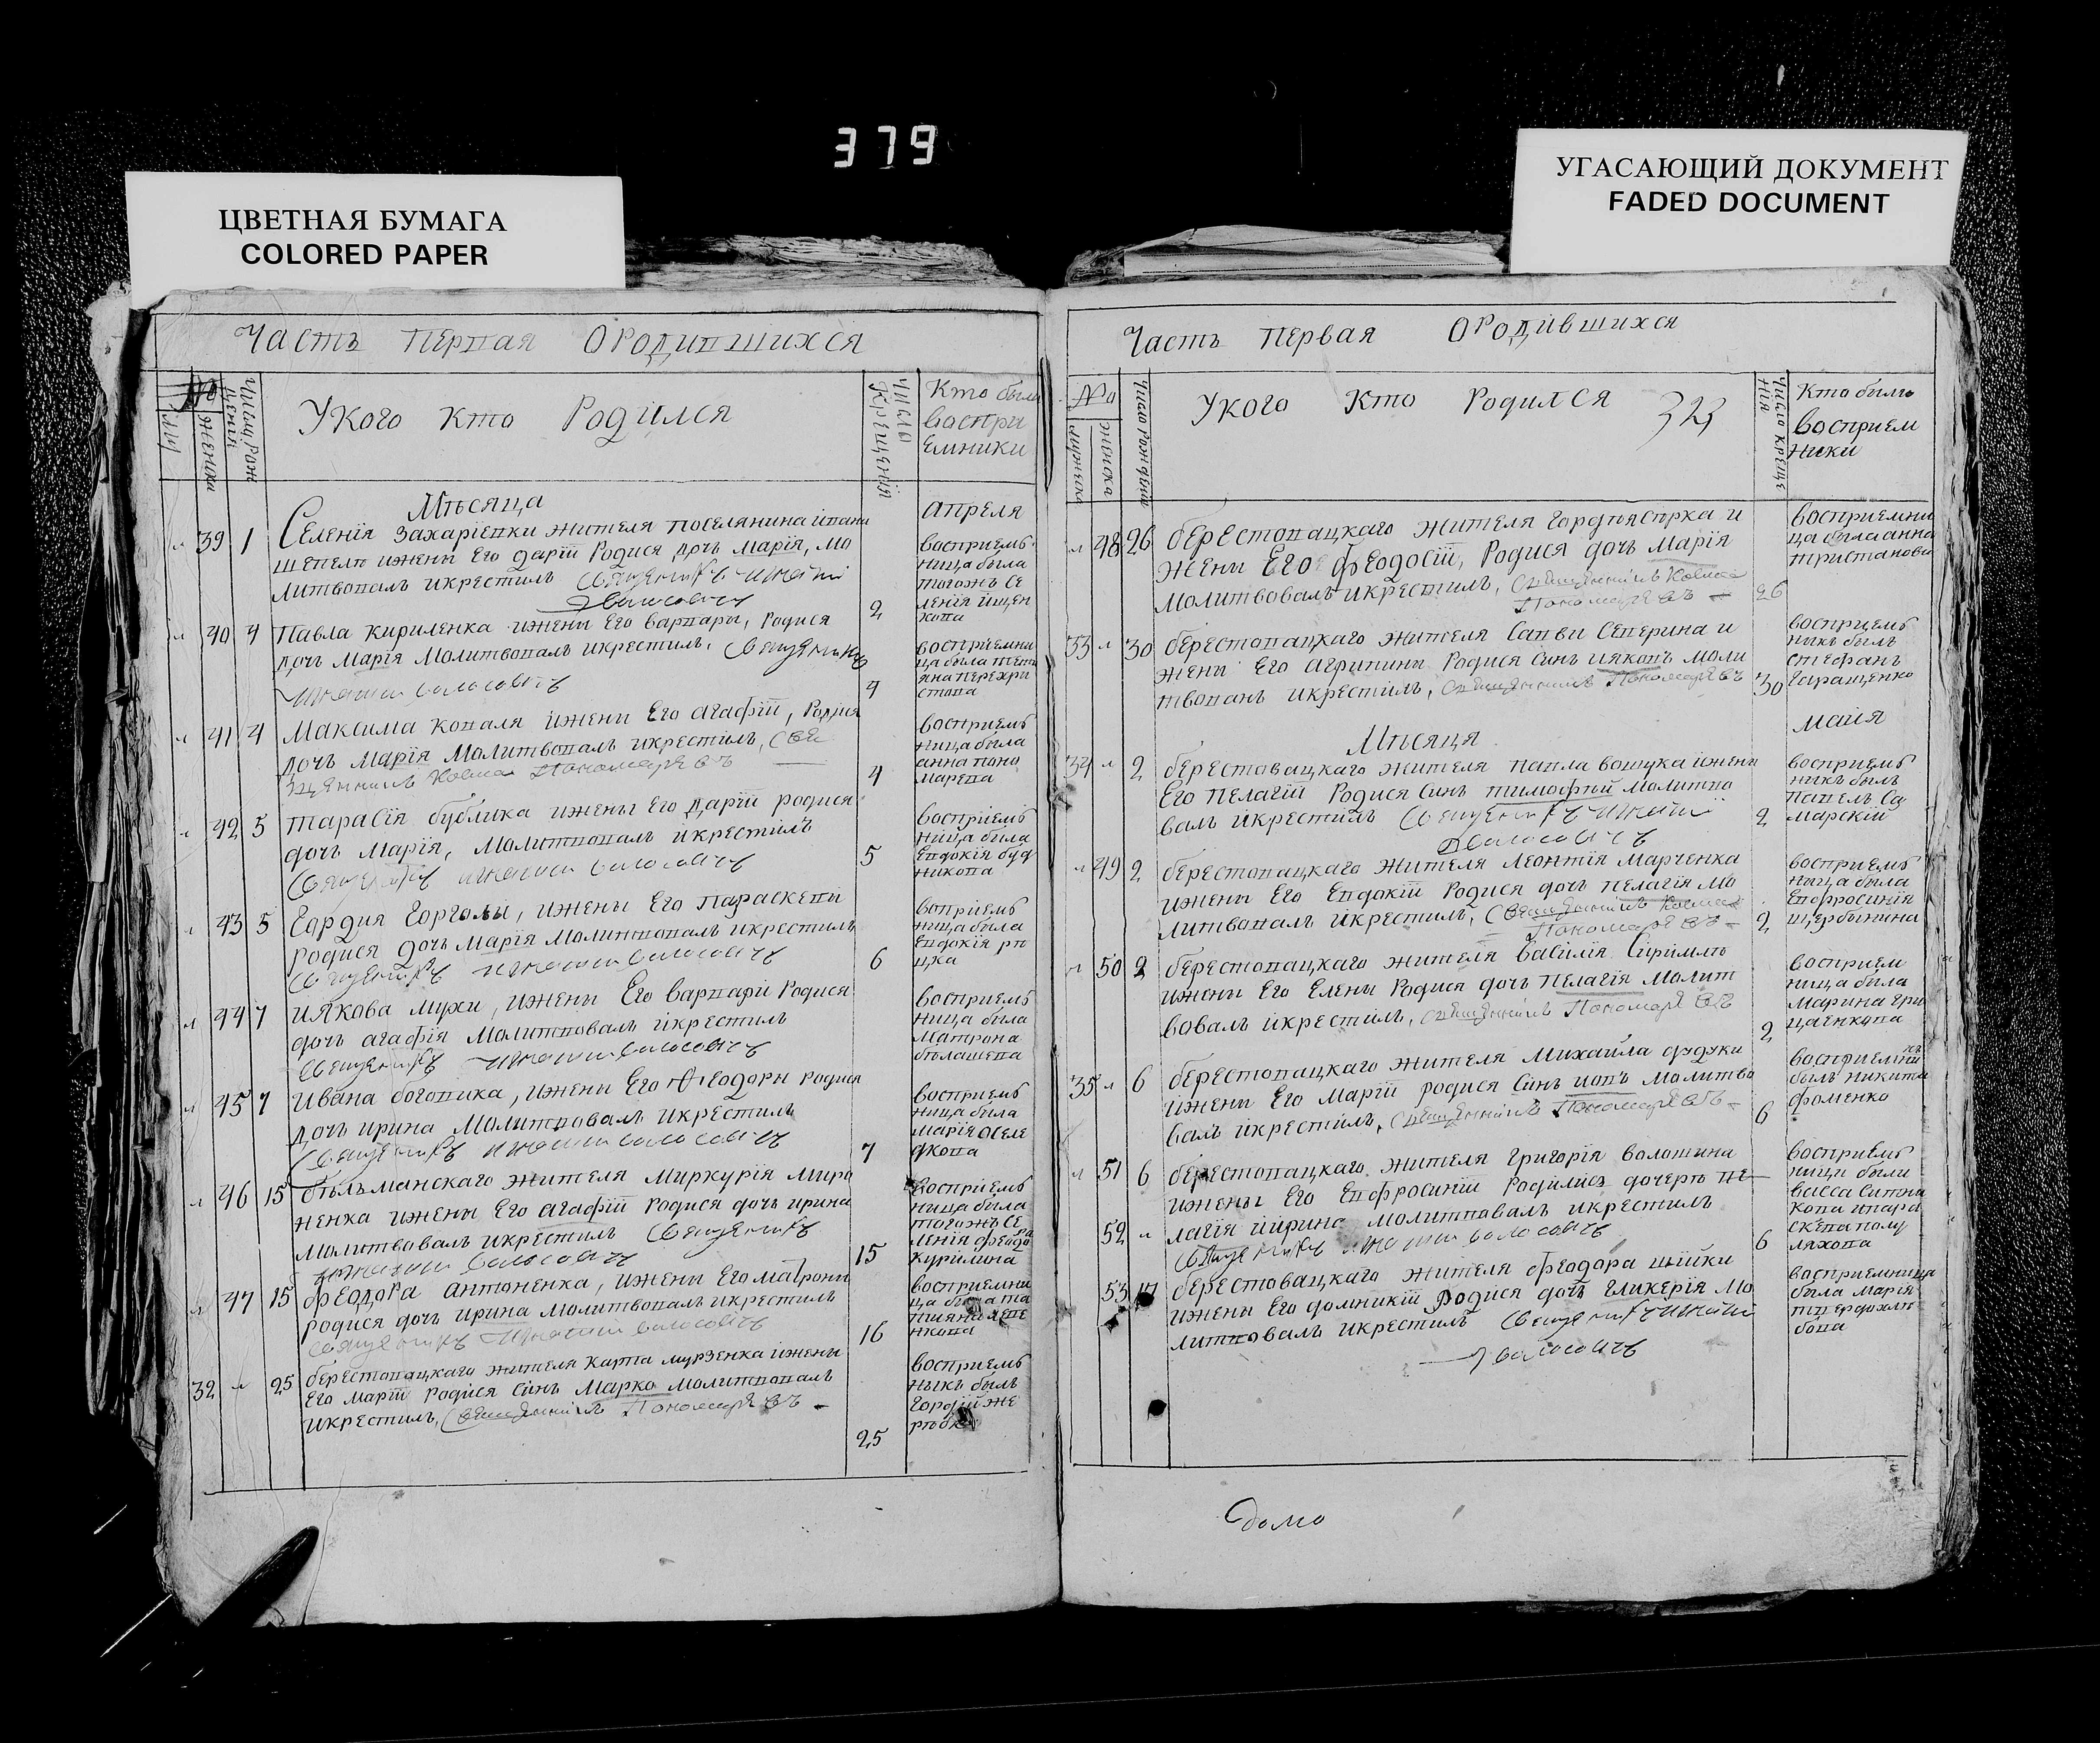 379
ЦВЕТНАЯ БУМАГА
COLORED PAPER
УГАСАЮЩИЙ ДОКУМЕНТ
FADED DOCUMENT
Часть перпая Ородипшихся
№
женска
Укого кто Родился
число Крещенія
Кто были
воспри
Емники
Мѣсяца
апреля
39 1 Селенія Захаріепки жителя поселянина
ижени Его дарїй Родися дочь Марія, мо
литвопалъ икрестилъ Священикъ Игнатий
Волосовичъ
2
восприемъ
ница была
тогожъ Се
ленія
40 4 Павла кириленка ижени Его варпари, Родися
дочь Марія Молитвопалъ икрестилъ. Священикъ
Игнатий Волосовичъ
4
восприемни
ца была
стопа
41 4 Максима копаля ижени Его агафїй, Родися
дочь Марїя Молитвопалъ икрестилъ, Свя
щенникъ Косма Пономаревъ
4
восприемъ
ница была
анна поно
марепа
42 5 тарасїя бублика ижены Его дарїй родися
дочь Марїя, Молитпопалъ икрестилъ
Священикъ игнатий волосовичъ
5
восприемъ
ница была
Епдокїя буд
никопа
43 5 Гордия Горголы, ижены Его параскепи
родися дочь Марїя Молитпопалъ икрестилъ
Священикъ игнатий волосовичъ
6
воприемъ
ница была
Епдокїя рп
цка
44 7 иякова мухи, ижени Его варпари Родися
дочь агафїя Молитповалъ икрестилъ
Священикъ игнатий волосовичъ
восприемъ
ница была
матрона
бѣлашепа
45 7 ивана богопика, ижени Его Ѳеодоры родися
дочь ирина Молитповалъ икрестилъ
Священикъ игнатий волосовичъ
7
восприемъ
ница была
Марїя
дкопа
46 15 бѣльманскаго жителя Меркурїя миро
ненка ижени Его агафїй Родися дочь ирина
молитвовалъ икрестилъ Священикъ
игнатий волосовичъ
15
восприемъ
ница была
тогожъ Се
ленїя феодо
Курилина
47 15 феодора антоненка, ижени Его матрони
родися дочь ирина молитвопалъ икрестилъ
Священикъ Игнатий волосовичъ
16
восприемни
ца была та
нкопа
32 25 берестопацкаго жителя Карпа мурзенка ижены
Его марїй родися синъ Марко молитпопалъ
икрестилъ, Священникъ Пономаревъ
25
восприемъ
никъ былъ
Гордїй же
Часть первая Ородившихся
№
мужеска
женска
Число рождения
Укого Кто Родился 323
Число креще
нія
Кто были
восприем
ники
48 26 берестопацкаго жителя
жени Его феодосїй, Родися дочь Марія
молитвовалъ икрестилъ, Священникъ Косма
Пономаревъ
26
восприемни
ца была анна
тристанова
33 30 берестопацкаго жителя Сапви Сеперина и
жени Его агрипини Родися синъ иякопъ моли
твопалъ икрестилъ, Священникъ Пономаревъ
30
восприемъ
никъ былъ
стефанъ
Геращенко
Мѣсяця
майя
34 2 берествацкаго жителя папла вощука ижени
Его Пелагїй Родися Синъ тимофѣй молитпо
валъ икрестилъ Священикъ Игнатий
волосовичъ
2
восприемъ
никъ былъ
Папелъ Са
марский
49 2 берестопацкаго жителя леонтїя марченка
ижени Его Епдокїй Родися дочь пелагїя мо
литвопалъ икрестилъ, Священникъ Косма
Пономаревъ
2
восприемъ
ница была
Епфросинїя
щербинина
50 2 берестопацкаго жителя василїя
ижени Его Елени Родися дочь пелагїя молит
вовалъ икрестилъ, Священникъ Пономаревъ
2
восприем
ница была
Марина гри
цаенкопа
35 6 берестопацкаго жителя Михайла дудуки
ижени Его Марїй родися Синъ иопъ молитво
валъ икрестилъ, Священникъ Пономаревъ
6
восприемни
былъ никита
фоменко
51 6 берестопацкаго жителя Григорїя волошина
ижены Его Епфросинїй Родились дочерѣ пе
52 лагїя иирина молитпавалъ икрестилъ
Священикъ игнатий волосовичъ
6
восприемъ
ници были
васса Ситни
копа ипара
скепа полу
ляхопа
53 берестовацкаго жителя феодора шыйки
ижены Его домникїй родися дочь Гликерїя мо
литповалъ икрестилъ Священикъ Игнатий
волосовичъ
восприемница
была марїя
твердохлѣ
бопа
домо